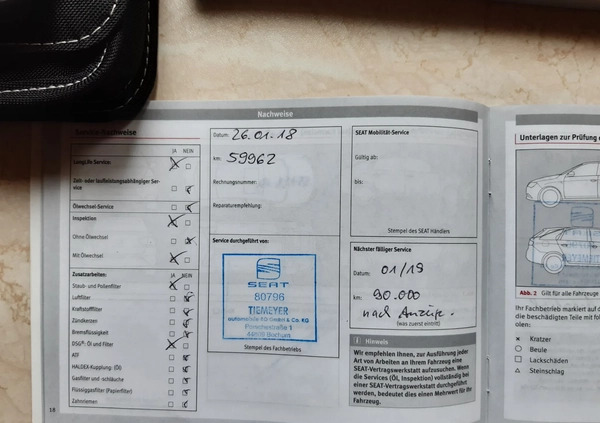 Nachweise
Service-Nachweise
JA NEIN
LongLife Service:
Zeit- oder laufleistungsabhängiger Ser-
vice
Ölwechsel-Service
Inspektion
Ohne Ölwechsel
Mit Ölwechsel
Zusatzarbeiten:
Staub- und Pollenfilter
Luftfilter
Kraftstofffilter
Zündkerzen
Bremsflüssigkeit
DSG®: Öl und Filter
ATF
HALDEX-Kupplung: (Öl)
Gasfilter und -schläuche
Flüssiggasfilter (Papierfilter)
Zahnriemen
18
Datum: 26.01.18
km: 59962
Rechnungsnummer:
Reparaturempfehlung:
Service durchgeführt von:
SEAT
80796
TIEMEYER
automobile AG GmbH & Co. KG
Porschestraße 1
44809 Bochum
Stempel des Fachbetriebs
SEAT Mobilität-Service
Gültig ab:
bis:
Stempel des SEAT Händlers
Nächster fälliger Service
Datum: 01/19
km: 90.000
nach Anzeige.
(was zuerst eintritt)
Hinweis
Wir empfehlen Ihnen, zur Ausführung jeder
Art von Arbeiten an Ihrem Fahrzeug eine
SEAT-Vertragswerkstatt aufzusuchen. Wenn
die Services (Öl, Inspektion) vollständig bei
einer SEAT-Vertragswerkstatt durchgeführt
werden, bedeutet dies einen Mehrwert für Ihr
Fahrzeug.
Unterlagen zur Prüfung
Abb. 2 Gilt für alle Fahrzeuge
Ihr Fachbetrieb markiert auf d
die beschädigten Teile mit fol
olen:
× Kratzer
○ Beule
□ Lackschäden
△ Steinschlag